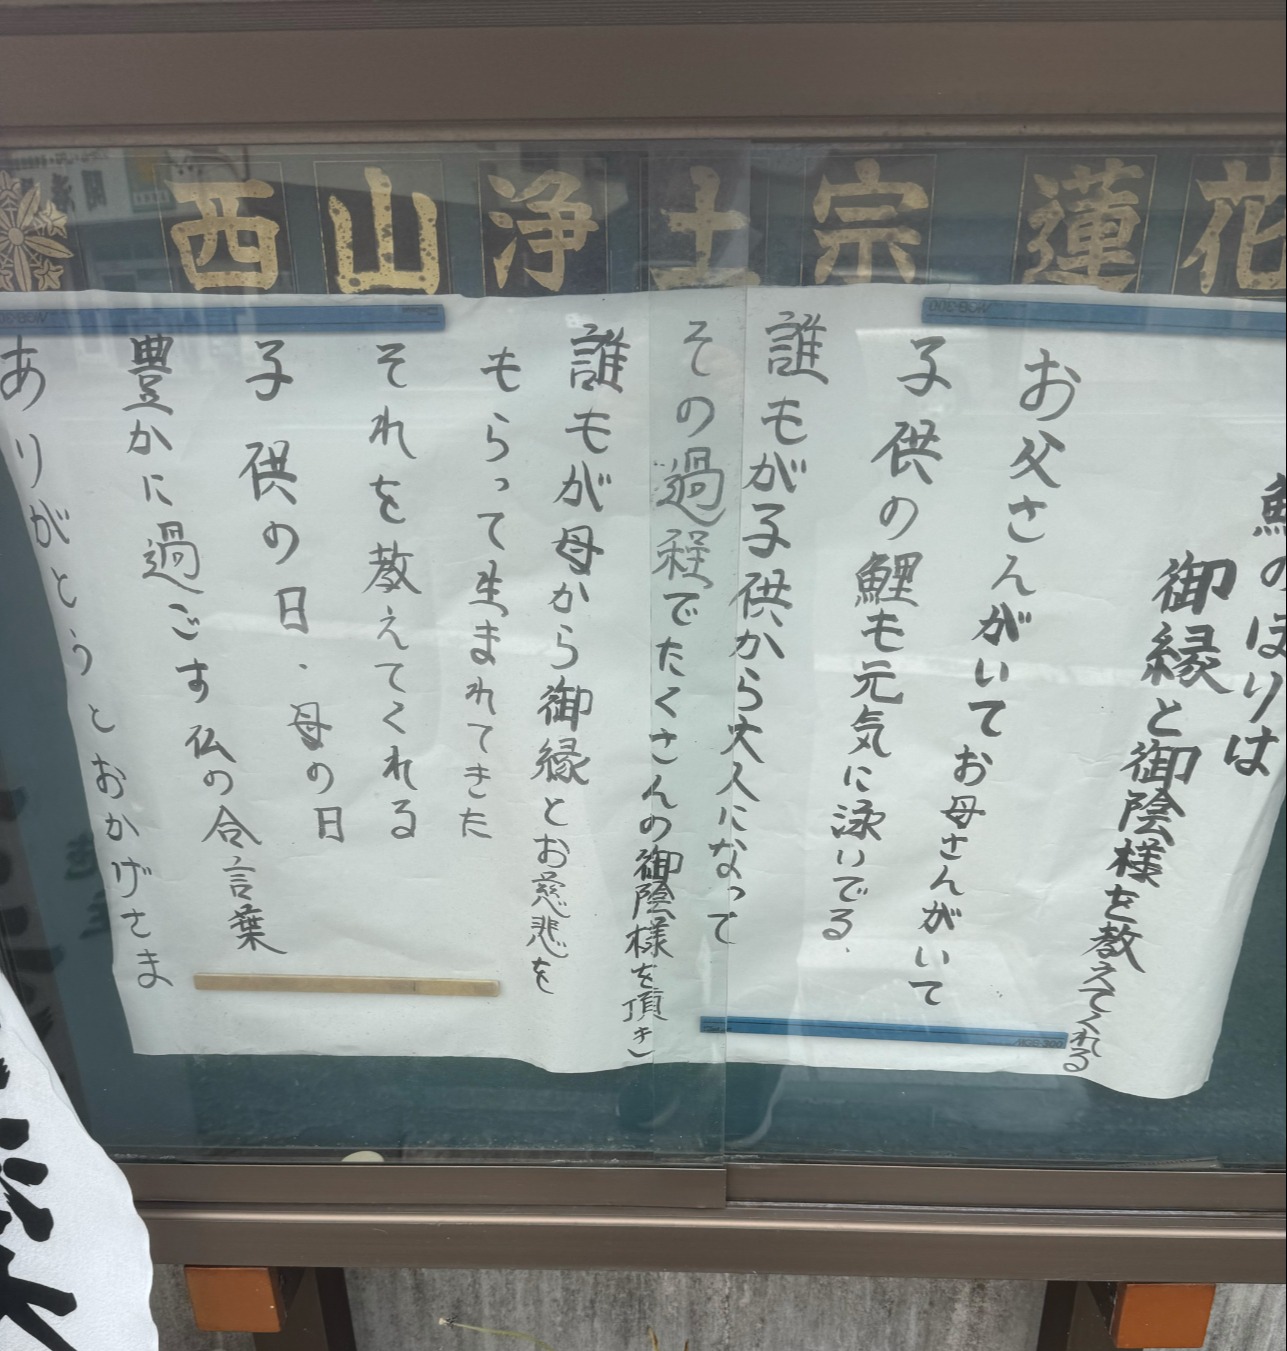 西山浄土宗蓮花
鯉のぼりは
御縁と御陰様を教えてくれる
お父さんがいてお母さんがいて
子供の鯉も元気に泳いでる.
誰もが子供から大人になって
その過程でたくさんの御陰様を頂き)
誰もが母から御縁とお慈悲を
もらって生まれてきた
それを教えてくれる
子供の日.母の日
豊かに過ごす仏の合言葉
ありがとうとおかげさま